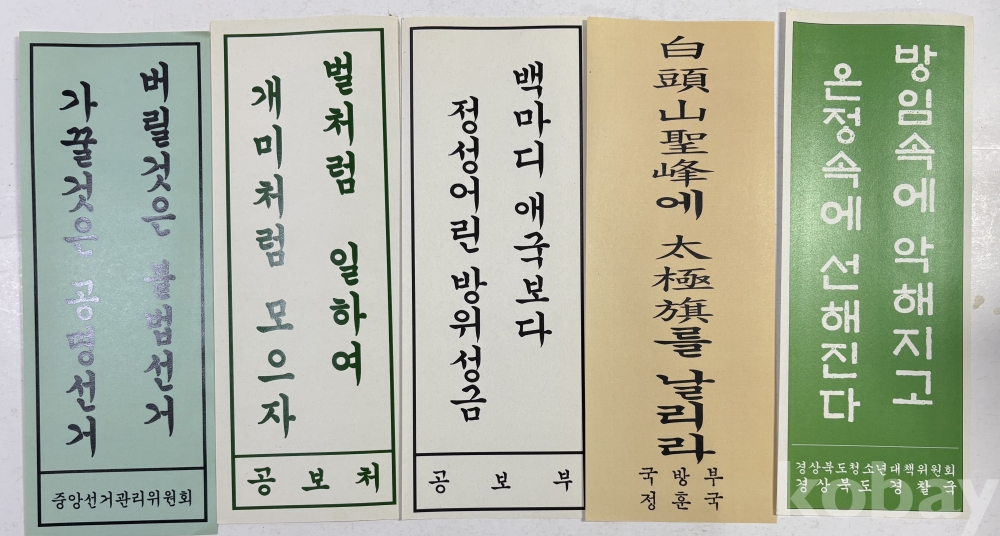 버릴것은 불법선거
가꿀것은 공명선거
중앙선거관리위원회
벌처럼 일하여
개미처럼 모으자
공보처
백마디 애국보다
정성어린 방위성금
공보부
白頭山聖峰에 太極旗를 날리라
국방부
정훈국
방임속에 악해지고
온정속에 선해진다
경상북도청소년대책위원회
경상북도경찰국
kobay